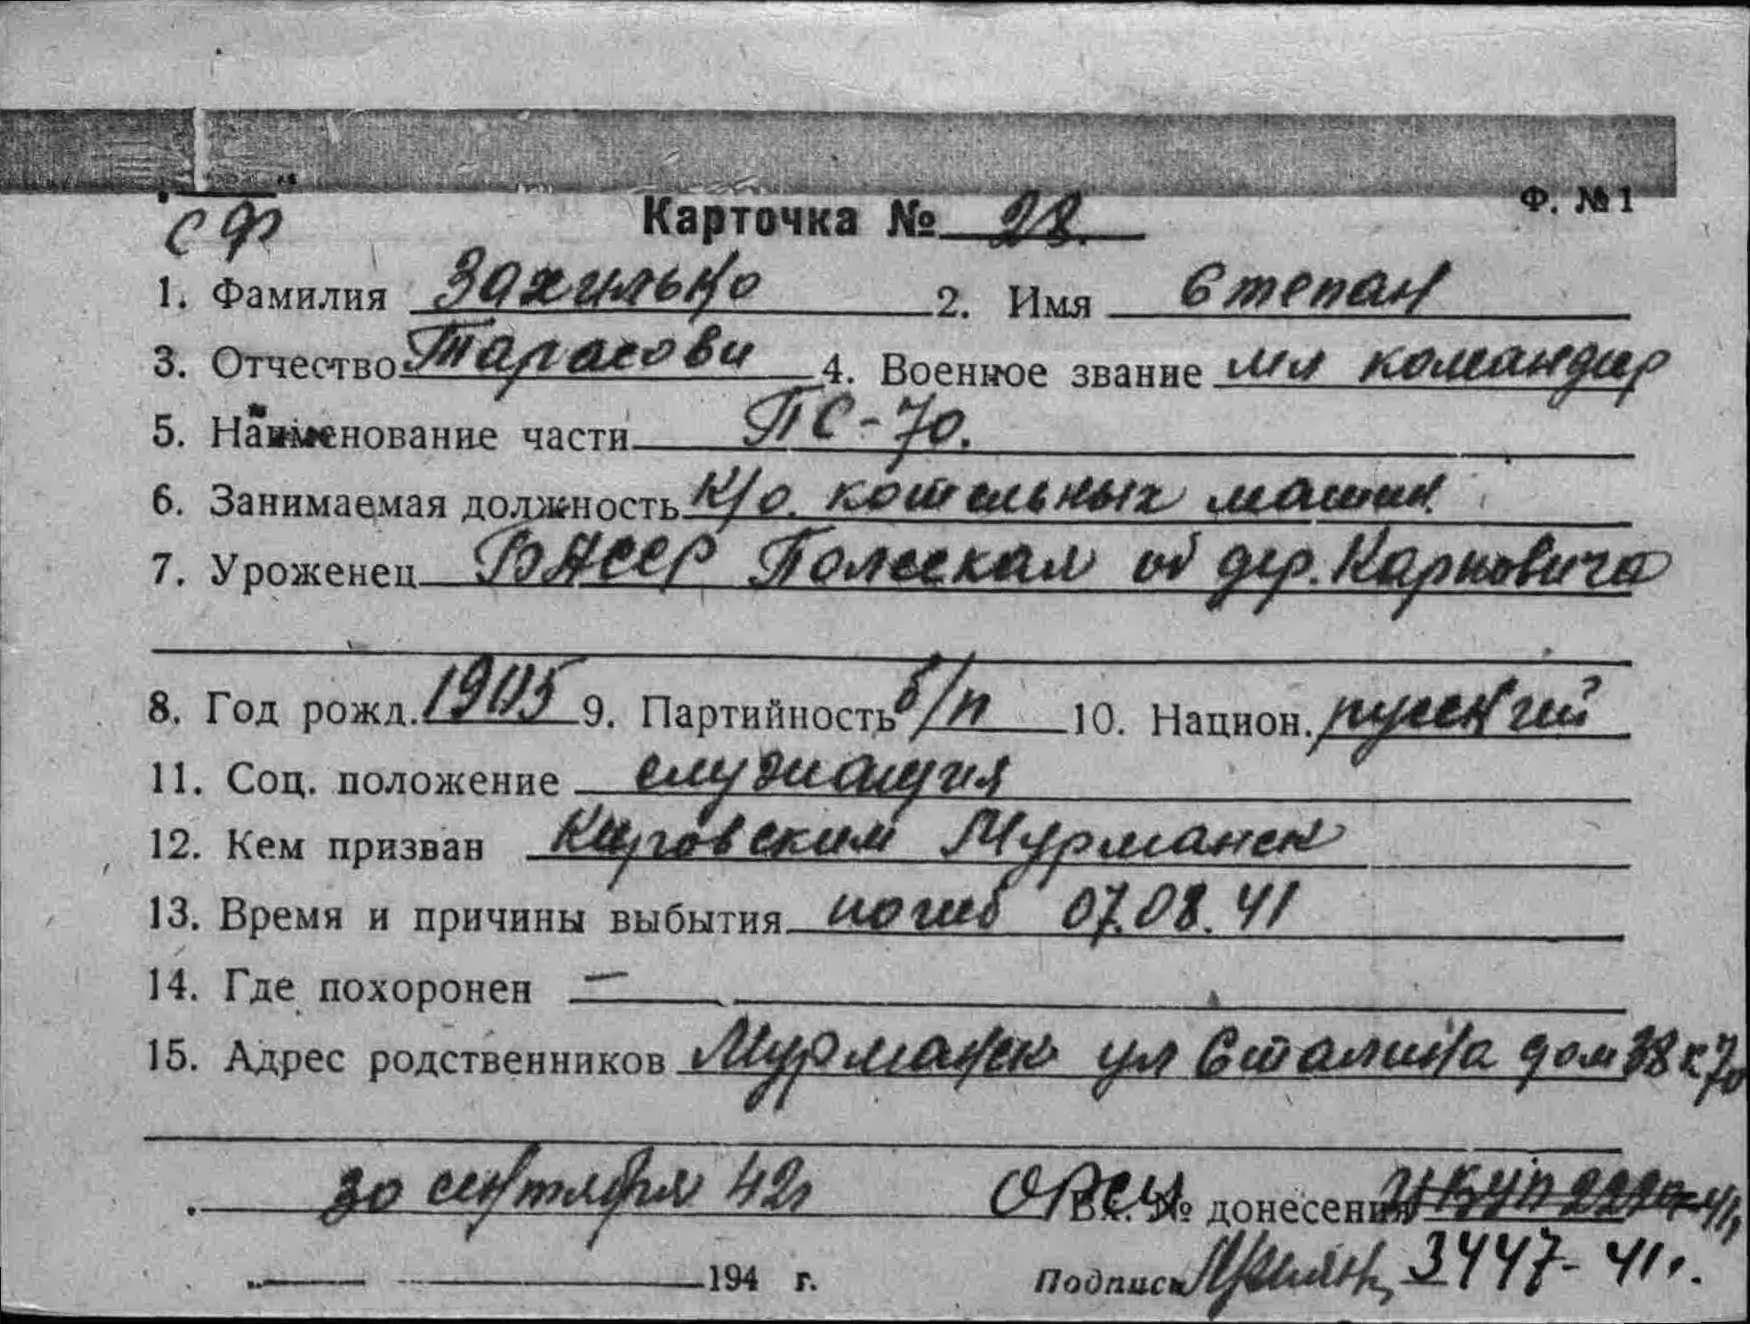 Ф. № 1
СФ
Карточка № 28.
1. Фамилия Захилько 2. Имя Степан
3. Отчество Тарасови 4. Военное звание мл командир
5. Наименование части ПС-70.
6. Занимаемая должность к/о. котельных машин.
7. Уроженец БССР Полеская об дер. Карповича
8. Год рожд. 1905 9. Партийность б/п 10. Национ. русский
11. Соц. положение служащия
12. Кем призван Кировским Мурманск
13. Время и причины выбытия погиб 07.08.41
14. Где похоронен —
15. Адрес родственников Мурманск ул Сталина дом 38 к 70
30 сентября 42г Вх. № донесения
194 г. Подпись 3447-41г.